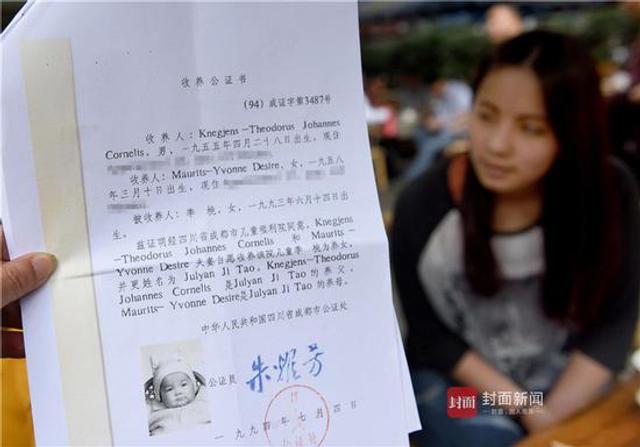 收养公证书
(94) 成证字第3487号
收养人：Knegjens-Theodorus Johannes
Cornelis，男，一九五五年四月二十八日出生，现住
收养人：Maurits-Yvonne Desire，女，一九五八
年三月十日出生，现住
被收养人：李桃，女，一九九三年六月十四日出
生。
兹证明经四川省成都市儿童福利院同意，Knegjens
-Theodorus Johannes Cornelis 和 Maurits-
Yvonne Desire 夫妻自愿收养该院儿童李桃为养女，
并更姓名为 Julyan Ji Tao，Knegjens-Theodorus
Johannes Cornelis 是Julyan Ji Tao 的养父，
Maurits- Yvonne Desire是Julyan Ji Tao 的养母。
中华人民共和国四川省成都市公证处
公证员
一九九四年七月四日
封面 封面新闻